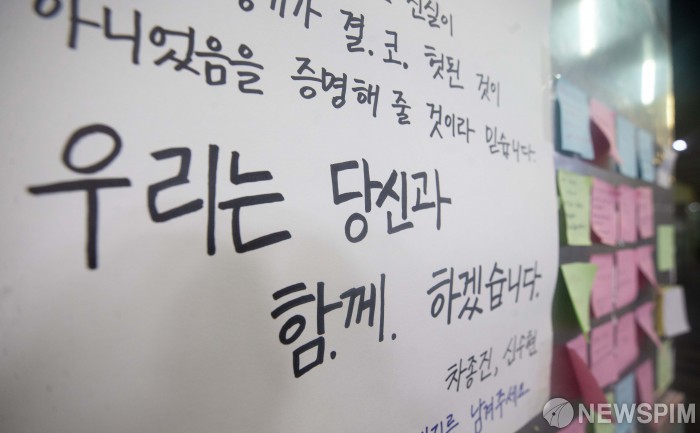 진실이
결.코. 헛된 것이
아니었음을 증명해 줄 것이라 믿습니다.
우리는 당신과
함.께. 하겠습니다.
차종진, 신수현
남겨주세요
NEWSPIM